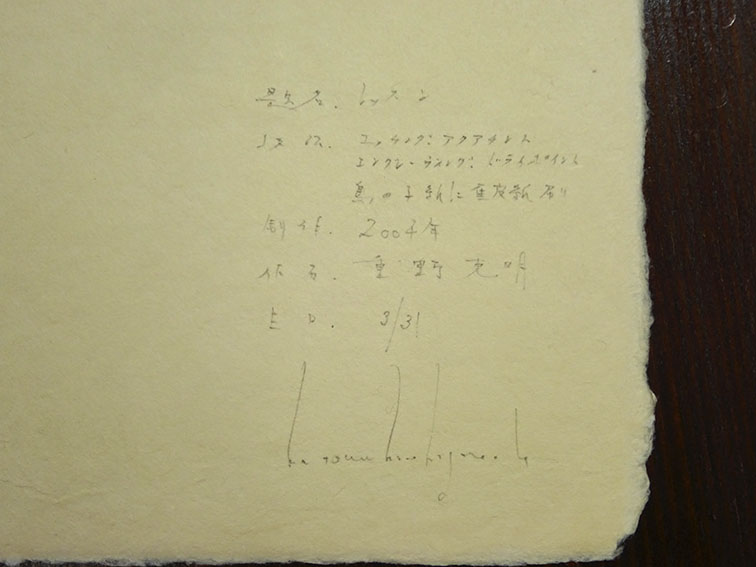 題名. レッスン
技法. エッチング: アクアチント
エングレーヴィング: ドライポイント
鳥の子紙に 雁皮紙刷り
制作. 2004年
作者. 重野克明
E D. 3/31